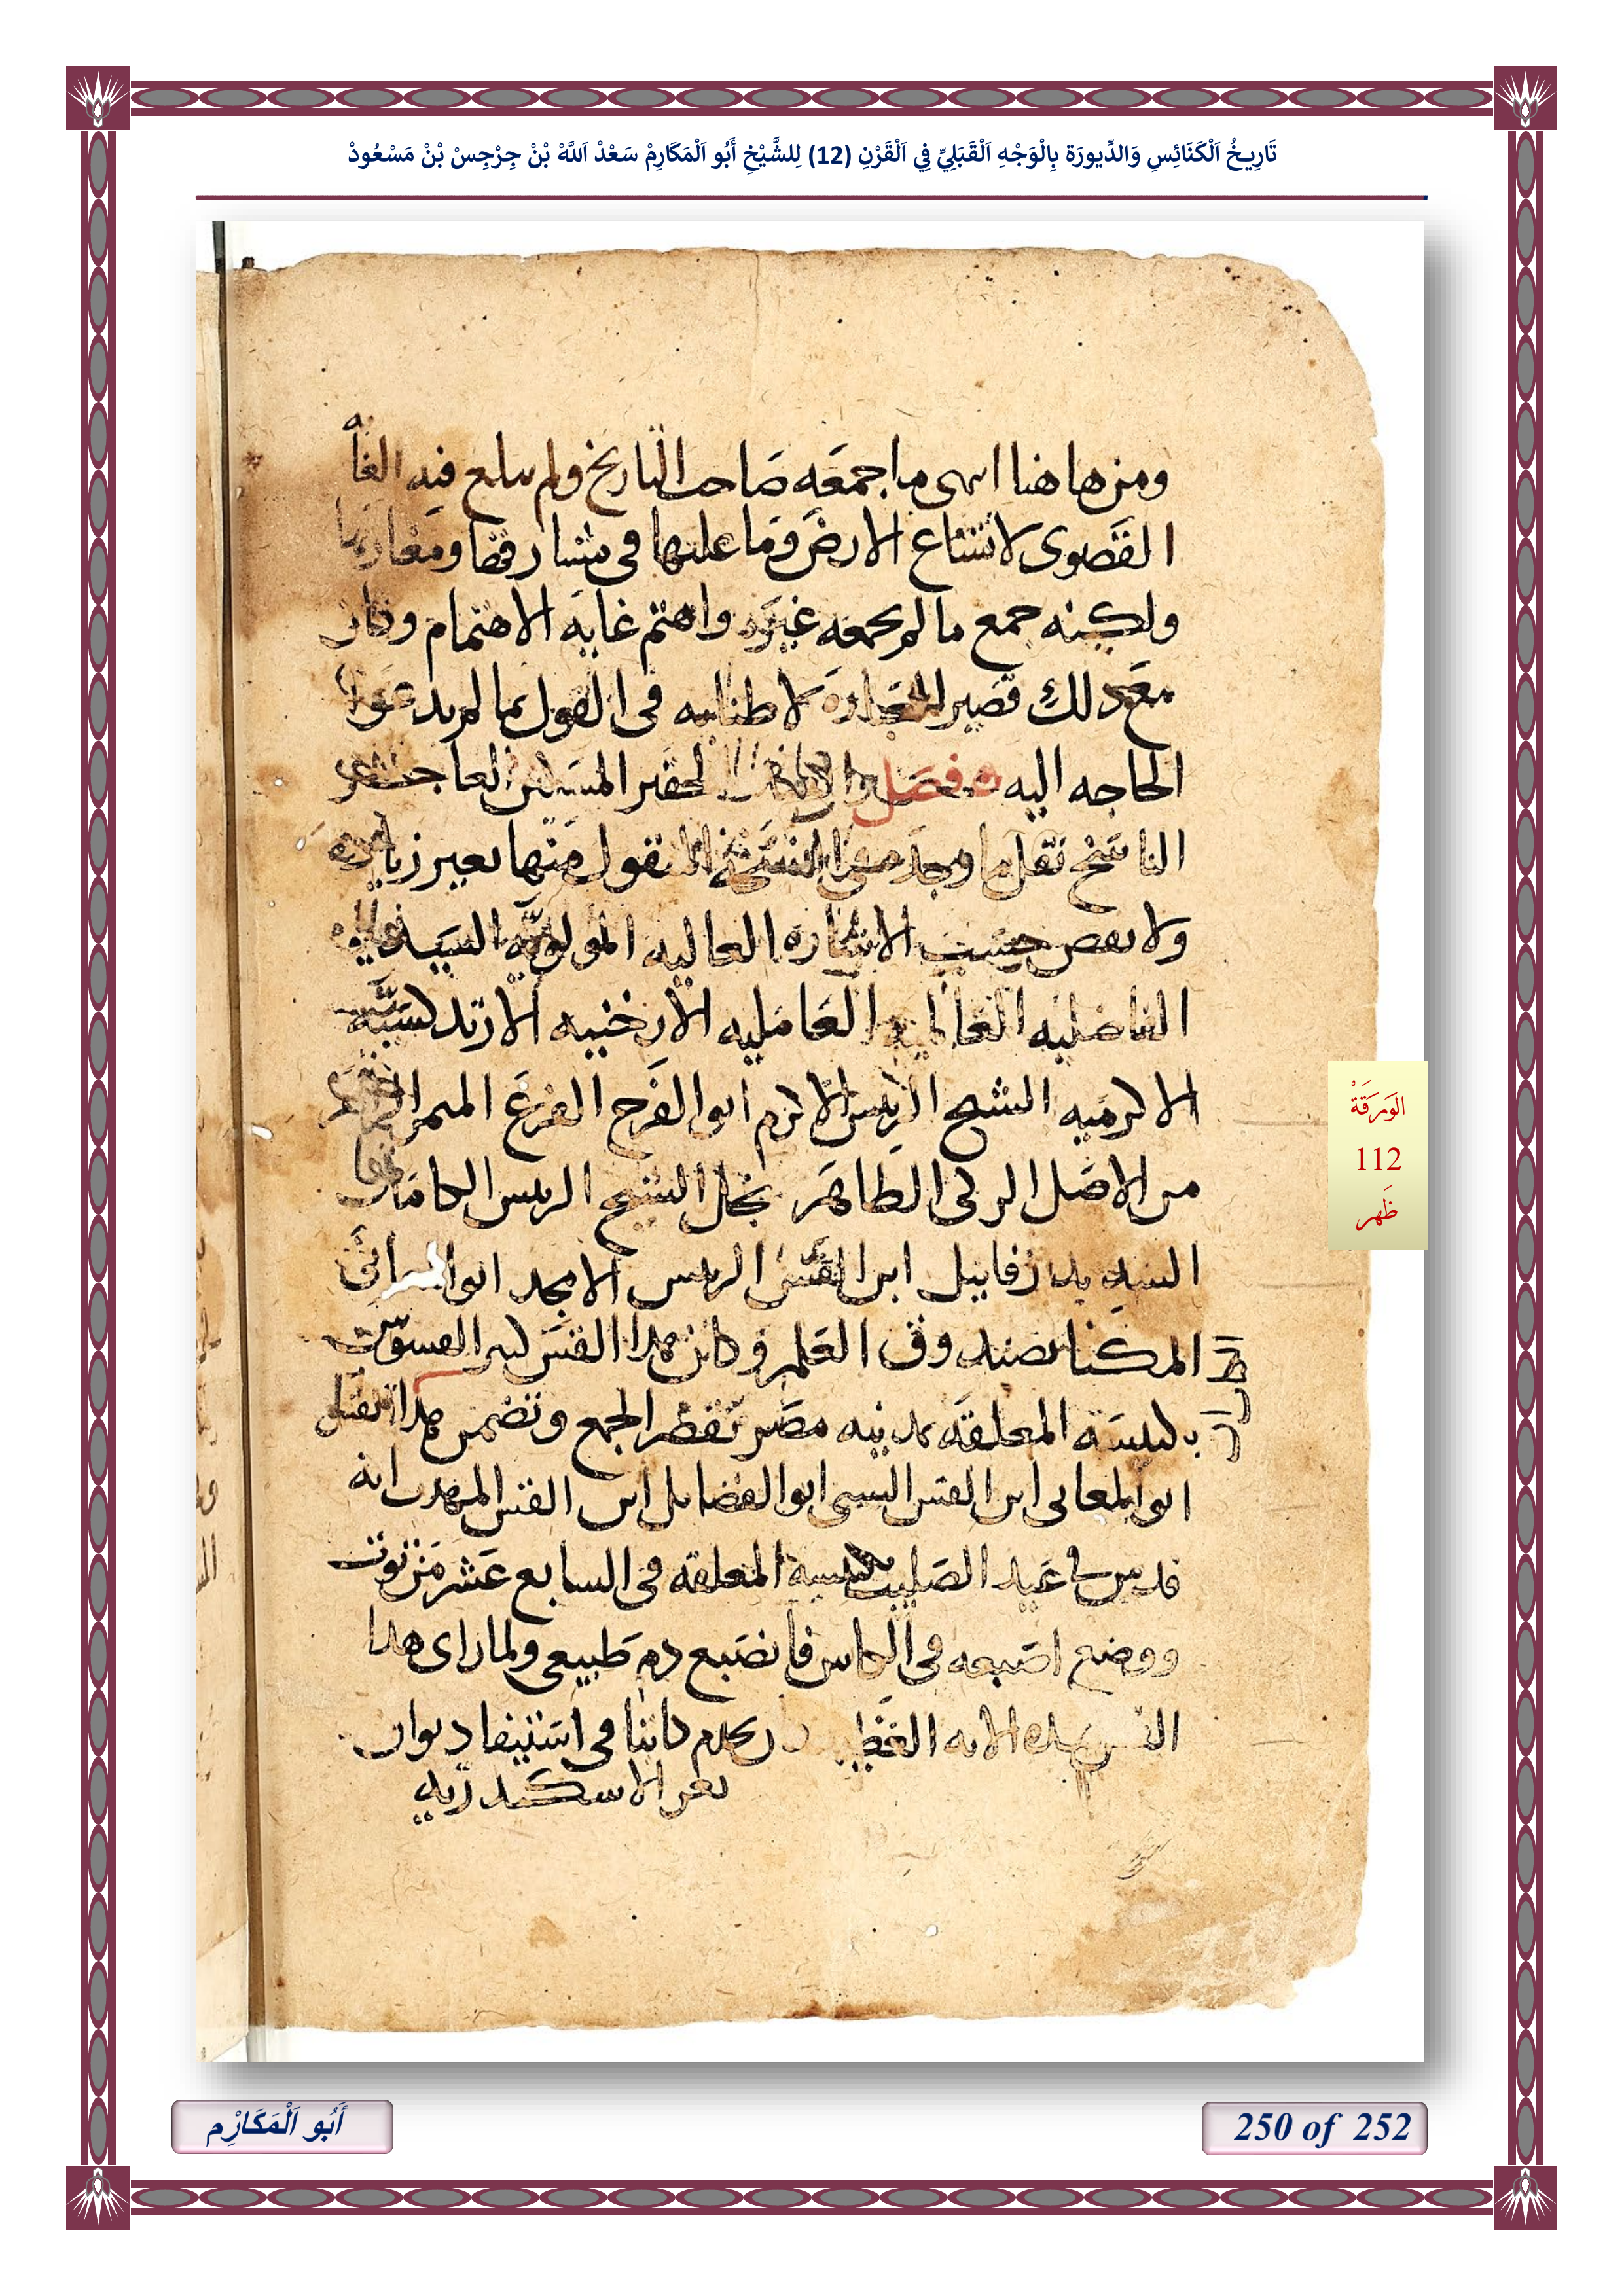 تَارِيخُ اَلْكَنَائِسِ وَالدِّيورَة بِالْوَجْهِ اَلْقَبَلِيِّ فِي اَلْقَرْنِ (12) لِلشَّيْخِ أَبُو اَلْمَكَارِمْ سَعْدْ اَللَّهْ بْنْ جِرْجِسْ بْنْ مَسْعُودْ
ومن هاهنا انتهى ما جمعه صاحب التاريخ ولم يبلغ فيه
القصوى لاتساع الارض وما عليها فى مشارقها ومغاربها
ولكنه جمع ما لم يجمعه غيره واهتم غايه الاهتمام وكان
مع ذلك قصير العباره لاطنابه فى القول بما لم تدعوا
الحاجه اليه فصل الحقير المسكين العاجز
الناسخ نقل ما وجد فى النسخه المنقول منها بغير زياده
ولا نقص حسب الاشاره العاليه المولويه السيديه
الفاضليه العالميه العامليه الارخنيه الارتدكسيه
الاكرميه الشيخ الريس الاكرم ابو الفرج الفرع المثمر
من الاصل الزكى الطاهر نجل الشيخ الريس
السديد زفاييل ابن القس الريس الامجد ابو
المكنا بصندوق العلم وكان هدا القس كبير القسوس
بكنيسة المعلقه بمدينه مصر بقصر الجمع وتضمن هدا
ابو المعالى ابن القس السنى ابو الفضايل ابن القس المهدب انه
قدس فى عيد الصليب بكنيسة المعلقه فى السابع عشر من توت
ووضع اصبعه فى الكاس فانصبع دم طبيعى ولما راى هدا
القس هده الايه العظيمه يخدم كاتبا فى استيفا ديوان
ثغر الاسكندريه
الوَرَقَةْ
112
ظَهر
أَبُو اَلْمَكَارِم
250 of 252